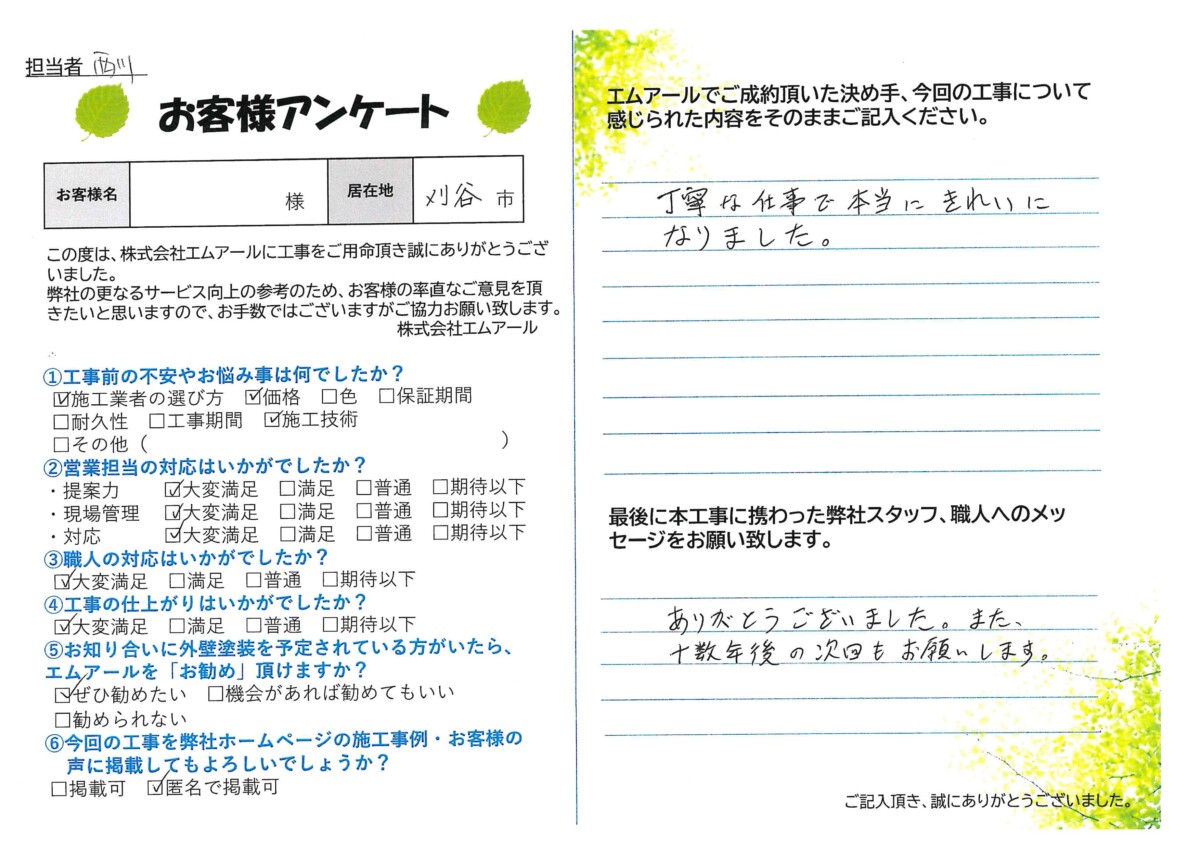 担当者 西川
お客様アンケート
お客様名 様 居在地 刈谷 市
この度は、株式会社エムアールに工事をご用命頂き誠にありがとうござ
いました。
弊社の更なるサービス向上の参考のため、お客様の率直なご意見を頂
きたいと思いますので、お手数ではございますがご協力お願い致します。
株式会社エムアール
①工事前の不安やお悩み事は何でしたか？
☑施工業者の選び方 ☑価格 □色 □保証期間
□耐久性 □工事期間 ☑施工技術
□その他（ ）
②営業担当の対応はいかがでしたか？
・提案力 ☑大変満足 □満足 □普通 □期待以下
・現場管理 ☑大変満足 □満足 □普通 □期待以下
・対応 ☑大変満足 □満足 □普通 □期待以下
③職人の対応はいかがでしたか？
☑大変満足 □満足 □普通 □期待以下
④工事の仕上がりはいかがでしたか？
☑大変満足 □満足 □普通 □期待以下
⑤お知り合いに外壁塗装を予定されている方がいたら、
エムアールを「お勧め」頂けますか？
☑ぜひ勧めたい □機会があれば勧めてもいい
□勧められない
⑥今回の工事を弊社ホームページの施工事例・お客様の
声に掲載してもよろしいでしょうか？
□掲載可 ☑匿名で掲載可
エムアールでご成約頂いた決め手、今回の工事について
感じられた内容をそのままご記入ください。
丁寧な仕事で本当にきれいに
なりました。
最後に本工事に携わった弊社スタッフ、職人へのメッ
セージをお願い致します。
ありがとうございました。また、
十数年後の次回もお願いします。
ご記入頂き、誠にありがとうございました。